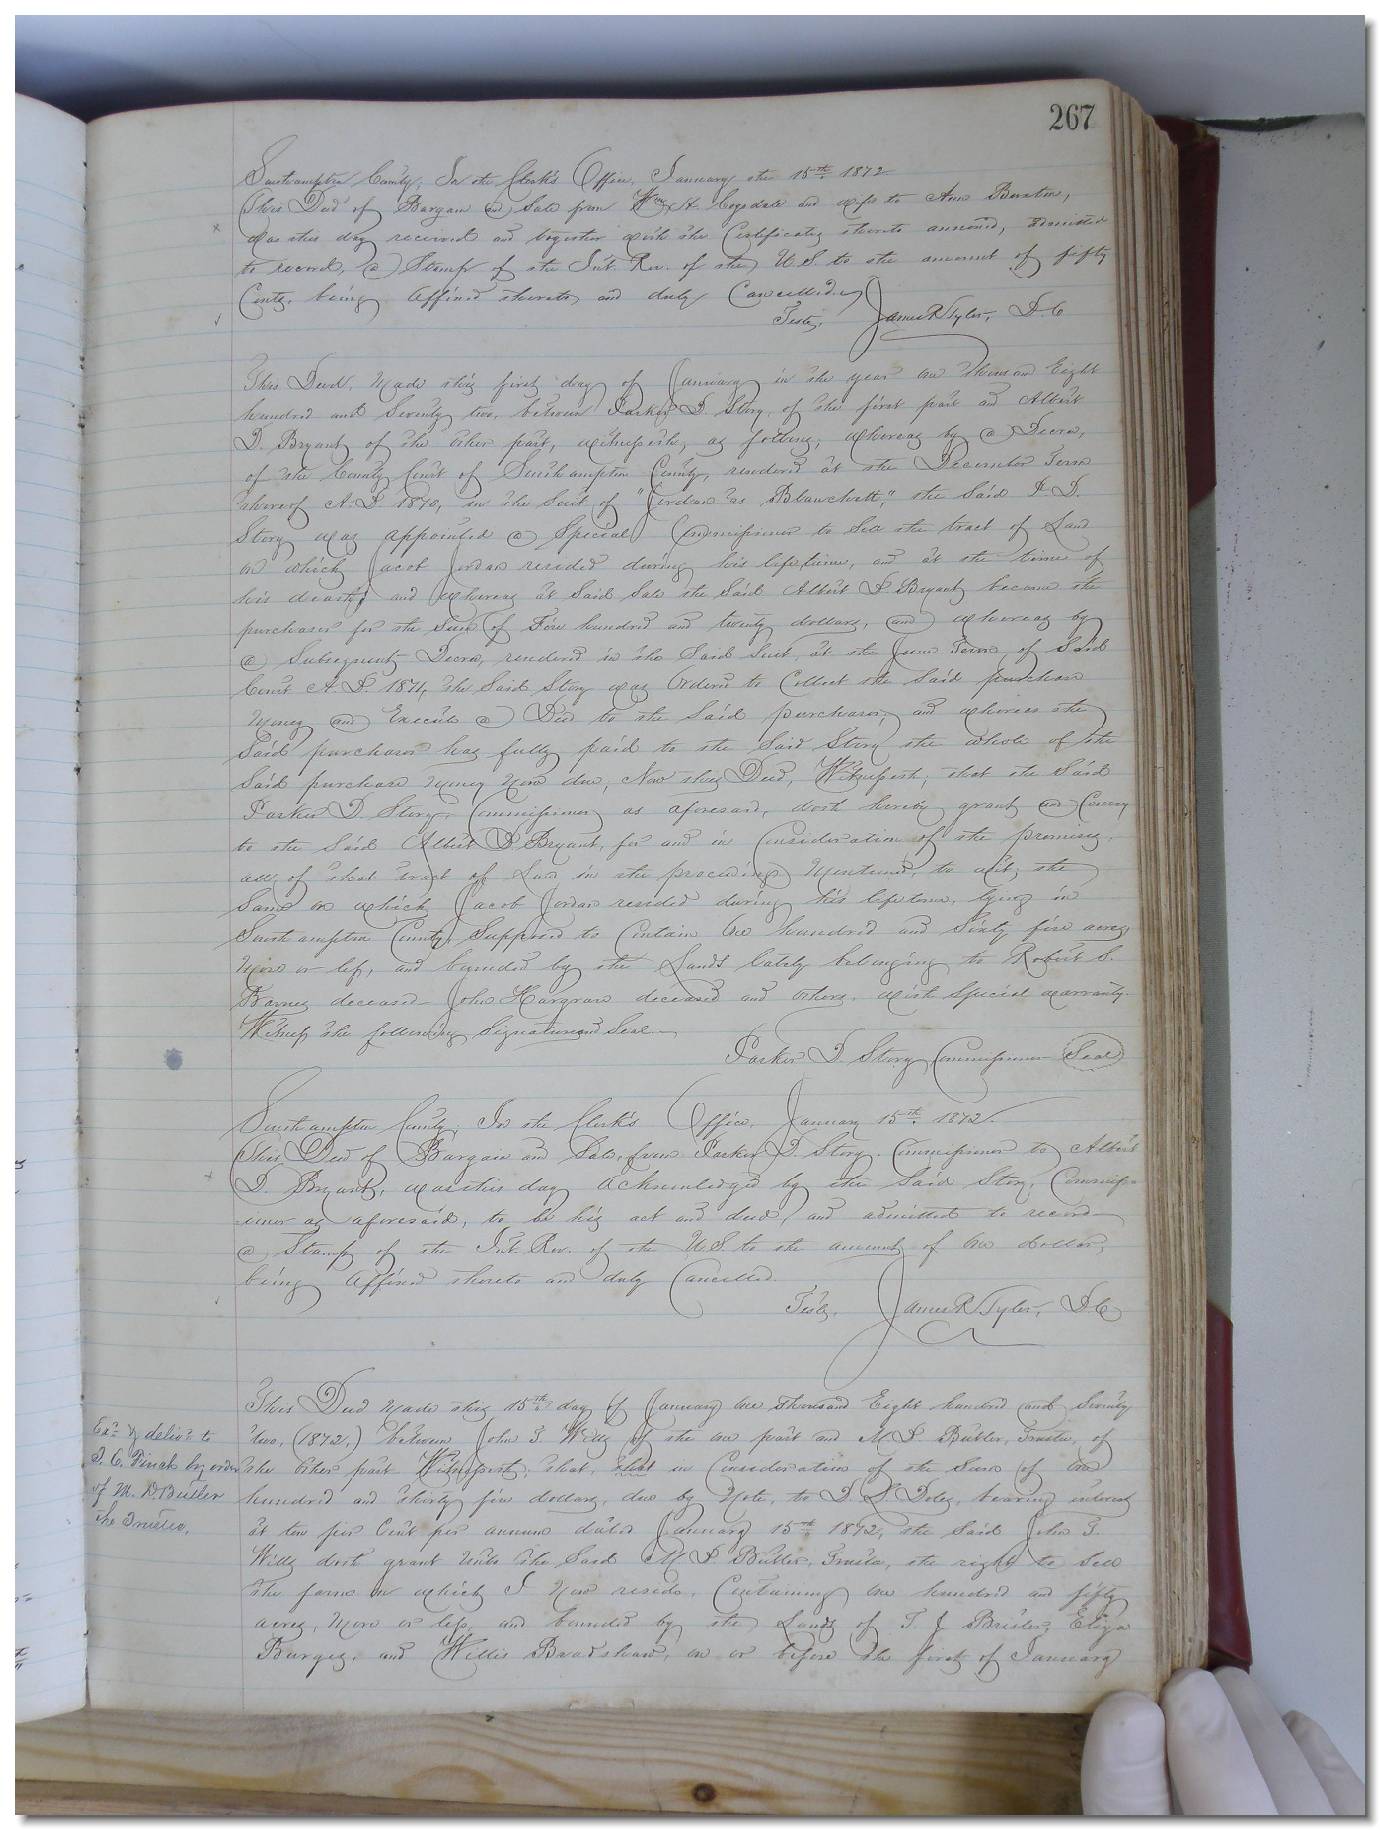 267
Southampton County, In the Clerk's Office, January the 15th 1872
This Deed of Bargain and Sale from Wm H. Cogsdale and wife to Ann Barton,
was this day received and together with the Certificates thereto annexed, admitted
to record, a Stamp of the Int. Rev. of the U.S. to the amount of fifty
Cents, being Affixed thereto, and duly Cancelled.
Teste, James R Tyler, D.C
This Deed, Made this first day of January in the year one thousand Eight
hundred and Seventy two, between Parker D. Story, of the first part and Albert
D. Bryant of the other part, witnesseth, as follows, whereas by a Decree,
of the County Court of Southampton County, rendered at the December Term
thereof A.D. 1870, in the Suit of "Jordan vs Blanchett," the Said P. D.
Story was appointed a Special Commissioner to Sell the tract of Land
on which Jacob Jordan resided during his lifetime, and at the time of
his death, and whereas at Said Sale the Said Albert D Bryant became the
purchaser for the Sum of Four hundred and twenty dollars, and whereas by
a Subsequent Decree, rendered in the Said Suit, at the June Term of Said
Court A.D. 1871, the Said Story was Ordered to Collect the Said purchase
Money and Execute a Deed to the Said purchaser, and whereas the
Said purchaser has fully paid to the Said Story the whole of the
Said purchase money now due, Now this Deed, Witnesseth, that the Said
Parker D. Story, Commissioner as aforesaid, doth hereby grant and Convey
to the Said Albert D Bryant, for and in Consideration of the premises,
all of that tract of Land in the proceedings Mentioned, to wit, the
Same on which Jacob Jordan resided during his lifetime, lying in
Southampton County, Supposed to Contain One hundred and Sixty five acres,
More or less, and bounded by the Lands lately belonging to Robert S.
Barnes deceased John Hargrave deceased and others, with Special warranty.
Witness the following Signature and Seal
Parker D. Story Commissioner Seal
Southampton County, In the Clerk's Office, January 15th 1872
This Deed of Bargain and Sale, from Parker D. Story, Commissioner to Albert
D. Bryant, was this day acknowledged by the Said Story, Commiss-
ioner as aforesaid, to be his act and deed, and admitted to record
a Stamp of the Int. Rev. of the U.S. to the amount of One dollar,
being Affixed thereto and duly Cancelled.
Teste, James R Tyler, D.C
This Deed Made this 15th day of January One thousand Eight hundred and Seventy
two, (1872,) between John T. Wills of the one part and M D Butler, Trustee, of
the other part Witnesseth, that, that in Consideration of the Sum of One
hundred and thirty five dollars, due by Note, to D. S. Doles, bearing interest
at ten per Cent per annum dated January 15th 1872, the Said John T.
Wills doth grant unto the Said M D Butler, Trustee, the right to Sell
the farm on which I now reside, Containing One hundred and fifty
acres, More or less, and bounded by the Lands of T. J Brister, Eliza
Burges, and Willis Bradshaw, on or before the first of January
Exd & delivd to
J. C. Finch by order
of M. D Butler
the Trustee,